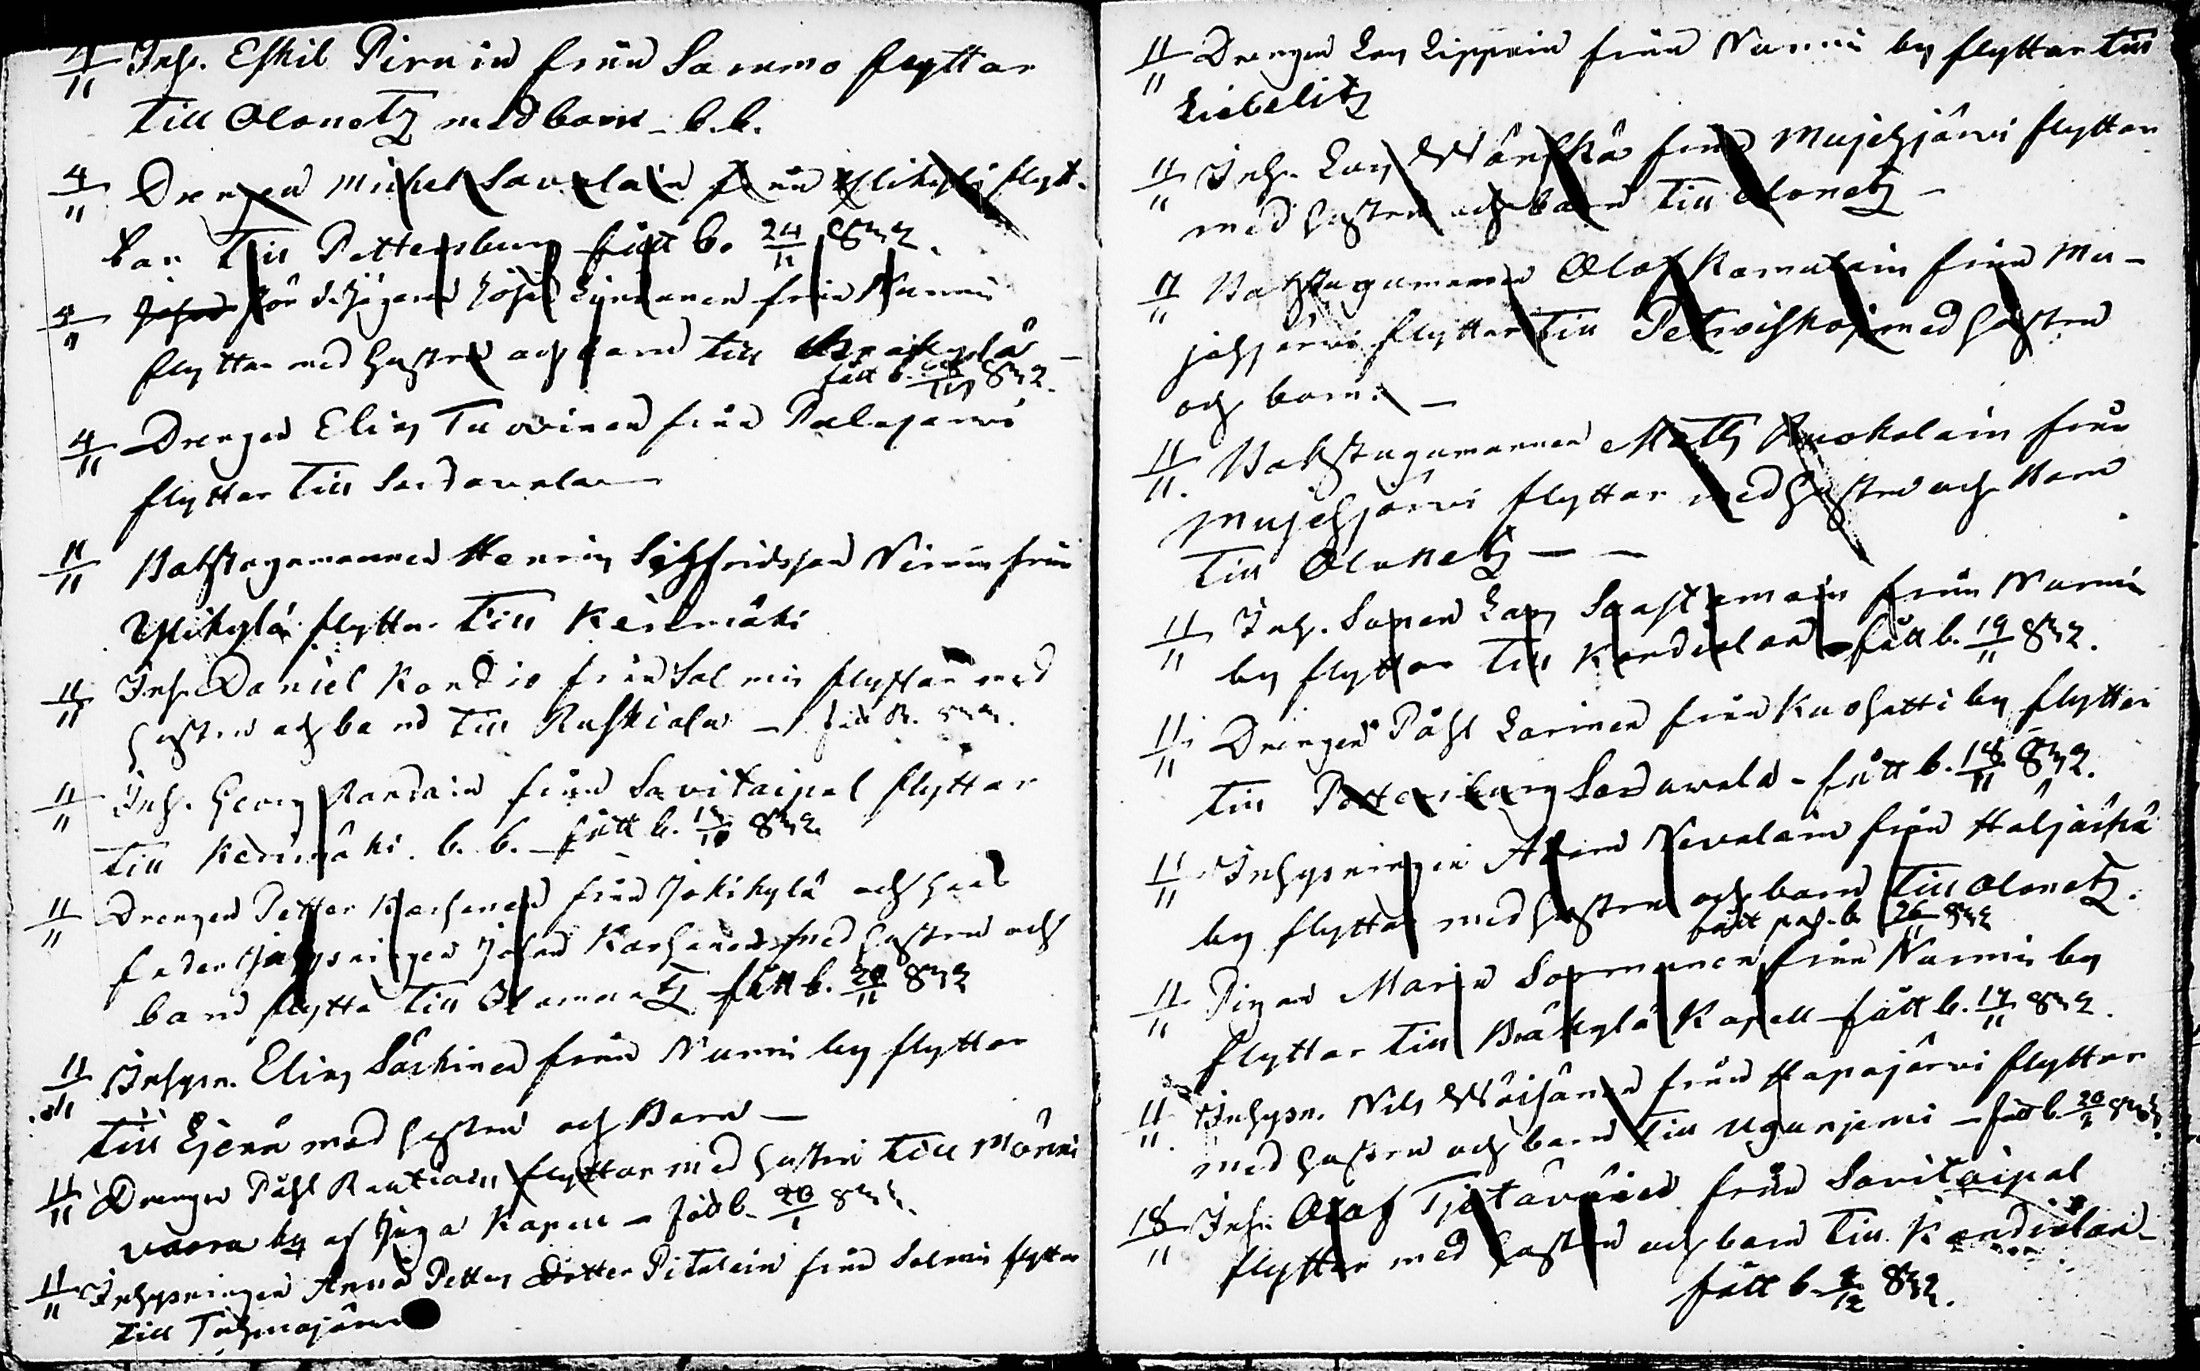 4/11 Inh. Eskil Pirnin från Sarmo flyttar
till Olonetz med barn b.b.
4/11 Drengen Michel Savolain från Ylikylä flyt-
tar till Pettersburg fått b. 24/11 832.
4/11 Inhs. Lyninen från Nurmis
flyttar med hustru och barn till Bräkylä
fått b. 832.
4/11 Drengen Elias Turvinen från Palojärvi
flyttar till Sordavala
11/11 Bakstugumannen Henric Sigfridsson Nirnin från
Ylikylä flyttar till Kerimäki
11/11 Inh. Daniel Kondio från Salmis flyttar med
hustru och barn till Ruskiala
11/11 Inh. Georg Randain från Savitaipal flyttar
till Kerimäki. b. b. fått b. 832
11/11 Drengen Petter Karhanen från Jokikylä och hans
fader Inhysningen Johan Karhanen med hustru och
barn flytta till Olonetz fått b. 20/11 832
11/11 Inhysn. Elias Särkinen från Nurmis by flyttar
till Egena med hustru och Barn
11/11 Drengen Påhl Rautiain flyttar med hustru till Mönni
vaara by af Juga Kapell
11/11 Inhysningen Anna Petters Dotter Pitolain från Salmis flyttar
till Tohmajärvi
11/11 Drengen Lars Lippoin från Nurmis by flyttar till
Liebelitz
11/11 Inh. Lars Wänskä från Mujejärvi flyttar
med hustru och barn till Olonetz
11/11 Bakstugumannen Olof Komulain från Mu-
jejärvi flyttar till Petroiskoj med hustru
och barn.
11/11. Bakstugumannen Matts Ruokolain från
Mujejärvi flyttar med hustru och Barn
till Olonetz
11/11 Inh. Sonen Lars Saastamoin från Nurmis
by flyttar till Kondiolax fått b. 19/11 832.
11/11 Drengen Påhl Larinen från Kuohatti by flyttar
till Pettersburg Sordawala - fått b. 18/11 832.
11/11 Inhysningen Adam Nevalain från Höljäkkä
by flyttar med hustru och barn till Olonetz.
fått pass.b. 26/11 832
11/11 Pigan Maria Sormunen från Nurmis by
flyttar till Bräkylä Kapell fått b. 17/11 832.
11/11. Inhysn. Nils Wäisänen från Hapajärvi flyttar
med hustru och barn till Uguniemi
18/11 Inh. Olof Tjetäväinen från Savitaipal
flyttar med hustru och barn till Kondiolax
fått b. 832.